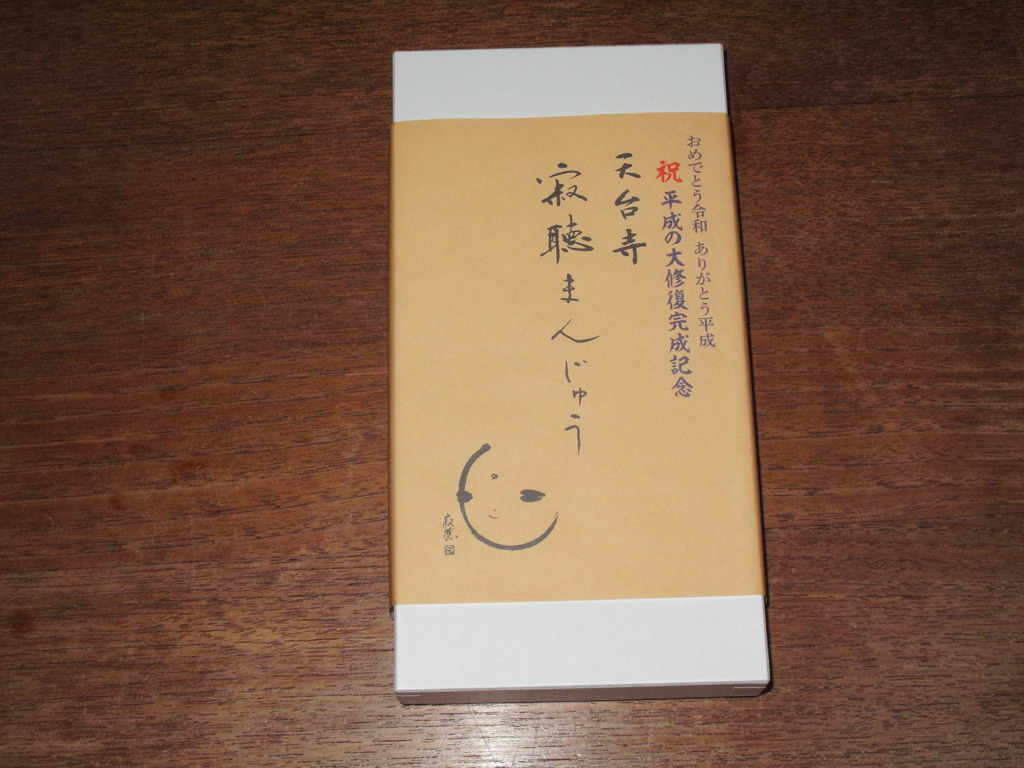 おめでとう令和 ありがとう平成
祝 平成の大修復完成記念
天台寺
寂聴まんじゅう
寂聴